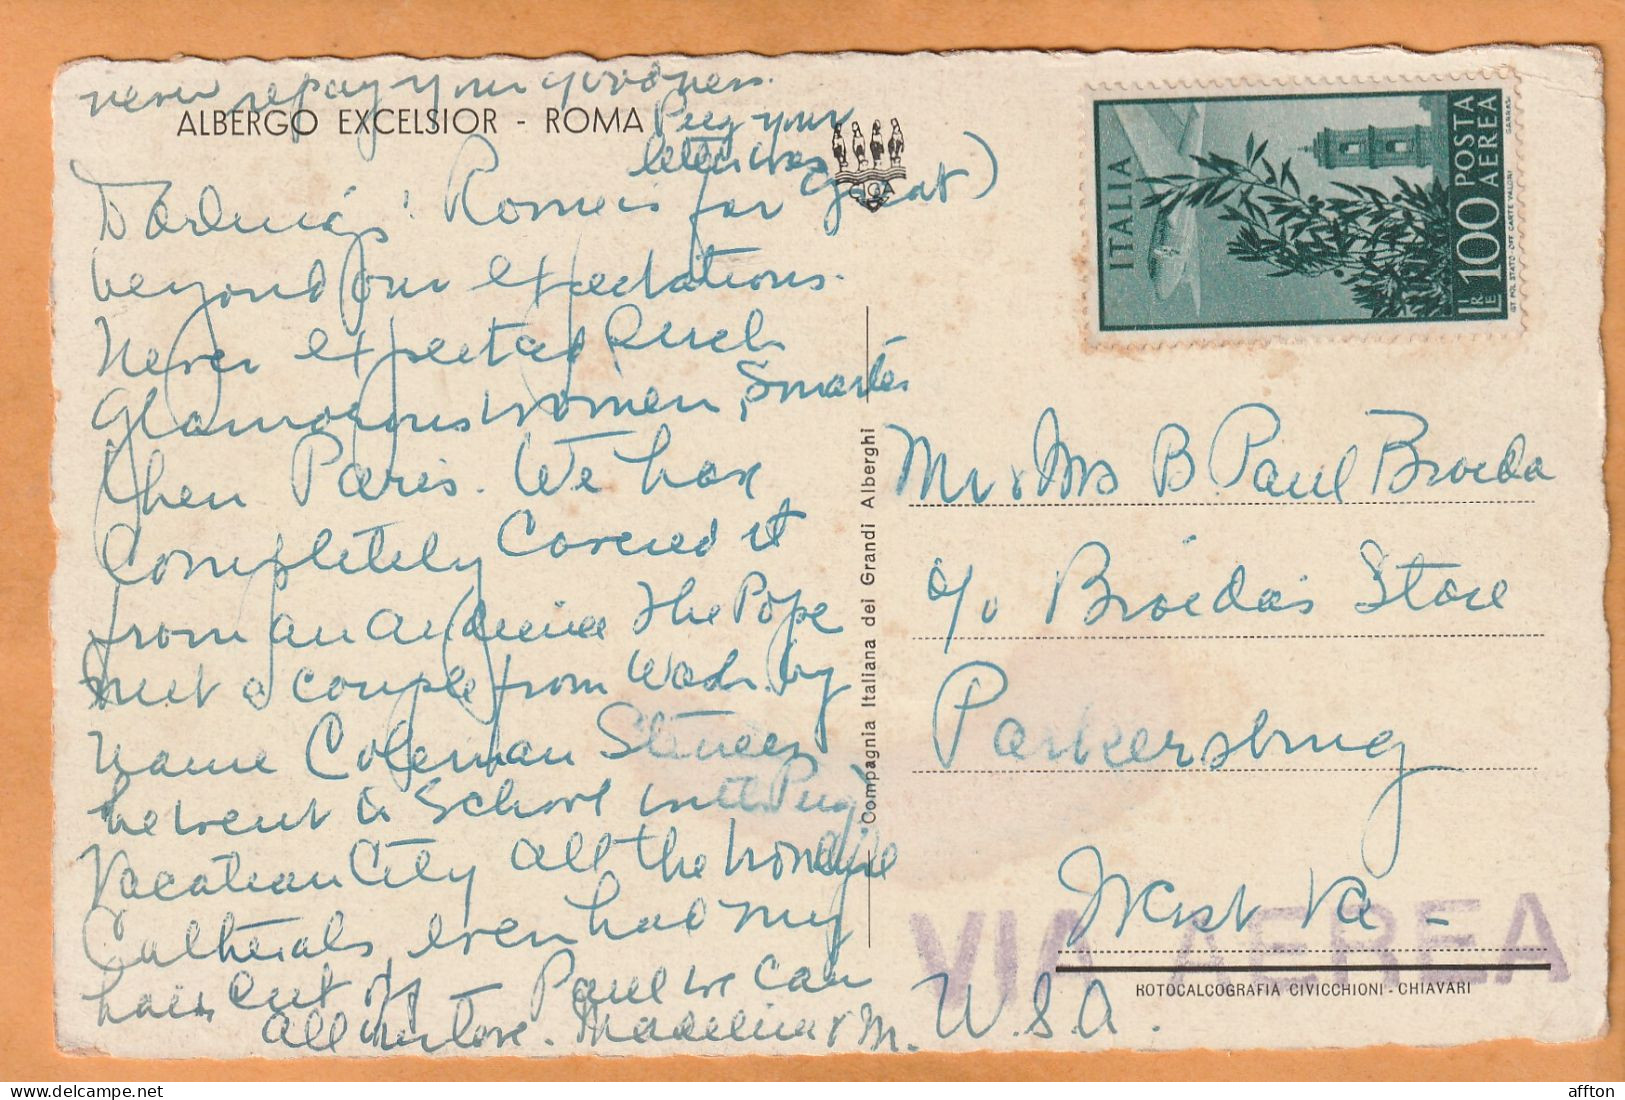 never repay your goodness.
ALBERGO EXCELSIOR - ROMA
Peg your
letter was
great)
CIGA
Darlings! Rome is far
beyond our expectations.
Never expected such
glamorous women, smarter
then Paris. We have
completely covered it
from an audience the Pope
met a couple from Wash. by
name Coleman
he went to school with Peg
Vacatican City all the wonderful
Catherals, even had my
hair cut off Paul we can
All our love. Madeline & M.
Compagnia Italiana dei Grandi Alberghi
ITALIA
LIRE 100 POSTA AEREA
IST. POL. STATO-OFF. CARTE VALORI
GARRASI
Mr & Mrs B. Paul Broida
c/o Broida's Store
Parkersburg
West Va -
U.S.A.
VIA AEREA
ROTOCALCOGRAFIA CIVICCHIONI - CHIAVARI
affton